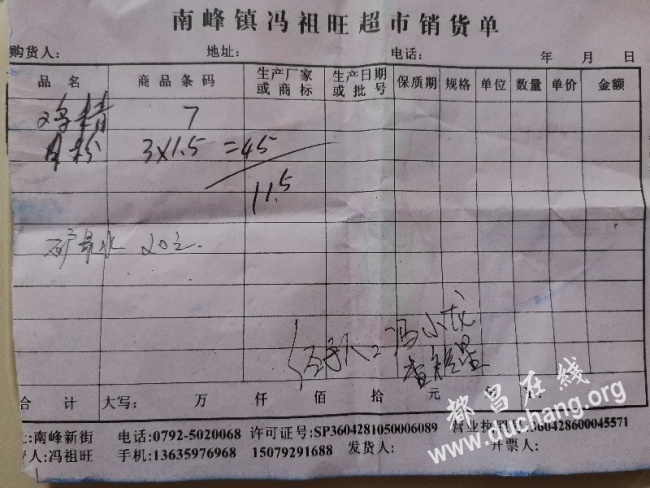 南峰镇冯祖旺超市销货单
购货人： 地址： 电话： 年 月 日
品名 商品条码 生产厂家或商标 生产日期或批号 保质期 规格 单位 数量 单价 金额
鸡精 7
3×1.5 =45
11.5
矿泉水 20元
经手人：冯小龙
合计 大写： 万 仟 佰 拾 元
:南峰新街 电话:0792-5020068 许可证号:SP3604281050006089 营业执照 :360428600045571
人:冯祖旺 手机:13635976968 15079291688 发货人: 开票人:
都昌在线
www.duchang.org